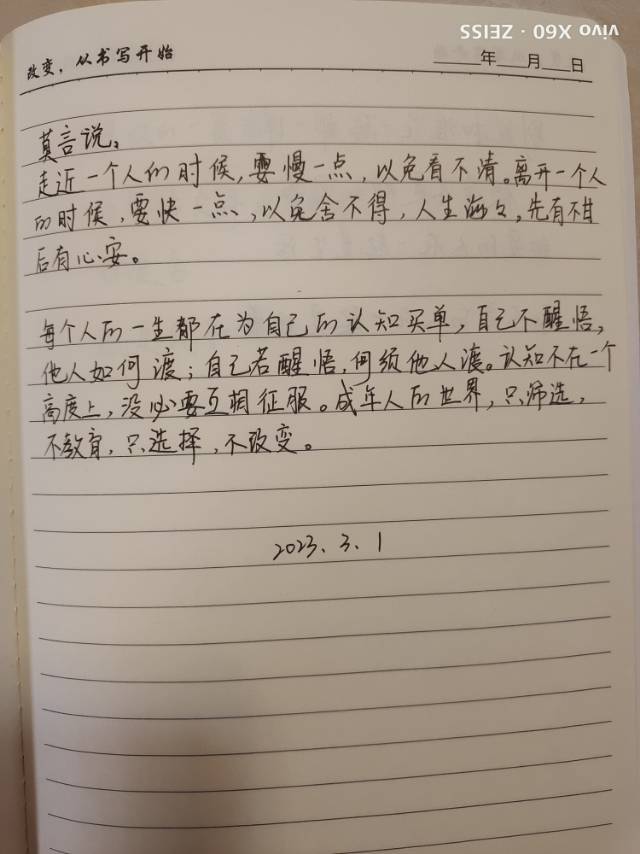 vivo X60 · ZEISS
改变，从书写开始
年 月 日
莫言说。
走近一个人的时候，要慢一点，以免看不清。离开一个人
的时候，要快一点，以免舍不得，人生海々，先有不甘
后有心安。
每个人的一生都在为自己的认知买单，自己不醒悟，
他人如何渡；自己若醒悟，何须他人渡。认知不在一个
高度上，没必要互相征服。成年人的世界，只筛选，
不教育，只选择，不改变。
2023、3、1